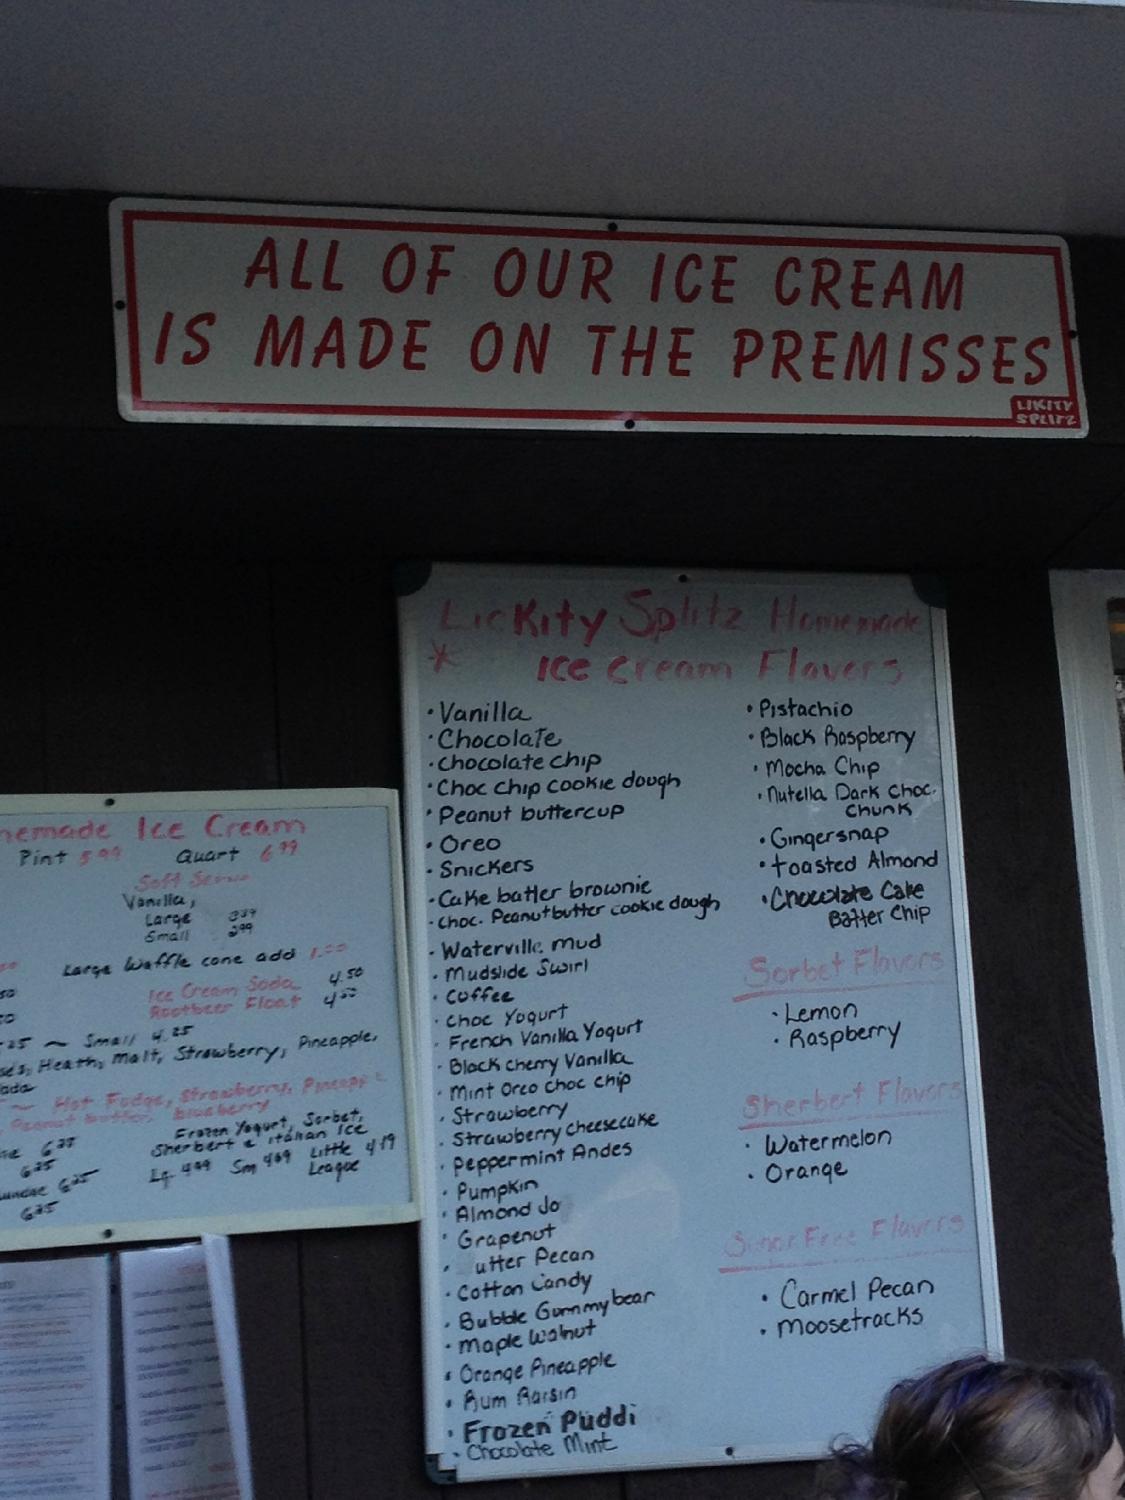 ALL OF OUR ICE CREAM
IS MADE ON THE PREMISSES
LIKITY
SPLITZ
LicKity Splitz Homemade
* Ice Cream Flavors
• Vanilla
• Chocolate
• Chocolate chip
• Choc chip cookie dough
• Peanut buttercup
• Oreo
• Snickers
• Cake batter brownie
• Choc. Peanutbutter cookie dough
• Waterville mud
• Mudslide Swirl
• Coffee
• Choc Yogurt
• French Vanilla Yogurt
• Black cherry Vanilla
• Mint Oreo choc chip
• Strawberry
• Strawberry cheesecake
• Peppermint Andes
• Pumpkin
• Almond Jo
• Grapenut
• utter Pecan
• Cotton Candy
• Bubble Gummybear
• Maple Walnut
• Orange Pineapple
• Rum Raisin
• Frozen Puddi
• Chocolate Mint
• Pistachio
• Black Raspberry
• Mocha Chip
• Nutella Dark Choc.
Chunk
• Gingersnap
• toasted Almond
• Chocolate Cake
Batter Chip
Sorbet Flavors
• Lemon
• Raspberry
Sherbert Flavors
• Watermelon
• Orange
Free Flavors
• Carmel Pecan
• Moosetracks
memade Ice Cream
Pint 5.99 Quart 6.99
Soft Serve
Vanilla,
Large
Small 2.99
Large Waffle cone add 1.00
Ice Cream Soda 4.50
Rootbeer Float 4.50
~ Small 4.25
Heath, malt, Strawberry, Pineapple,
ada
~ Hot Fudge, Strawberry, Pineapple
Peanut butter, blueberry
6.25 Frozen Yogurt, Sorbet,
6.25 Sherbert & italian Ice
undae 6.25 Lg 4.99 Sm 4.69 Little 4.19
6.25 League